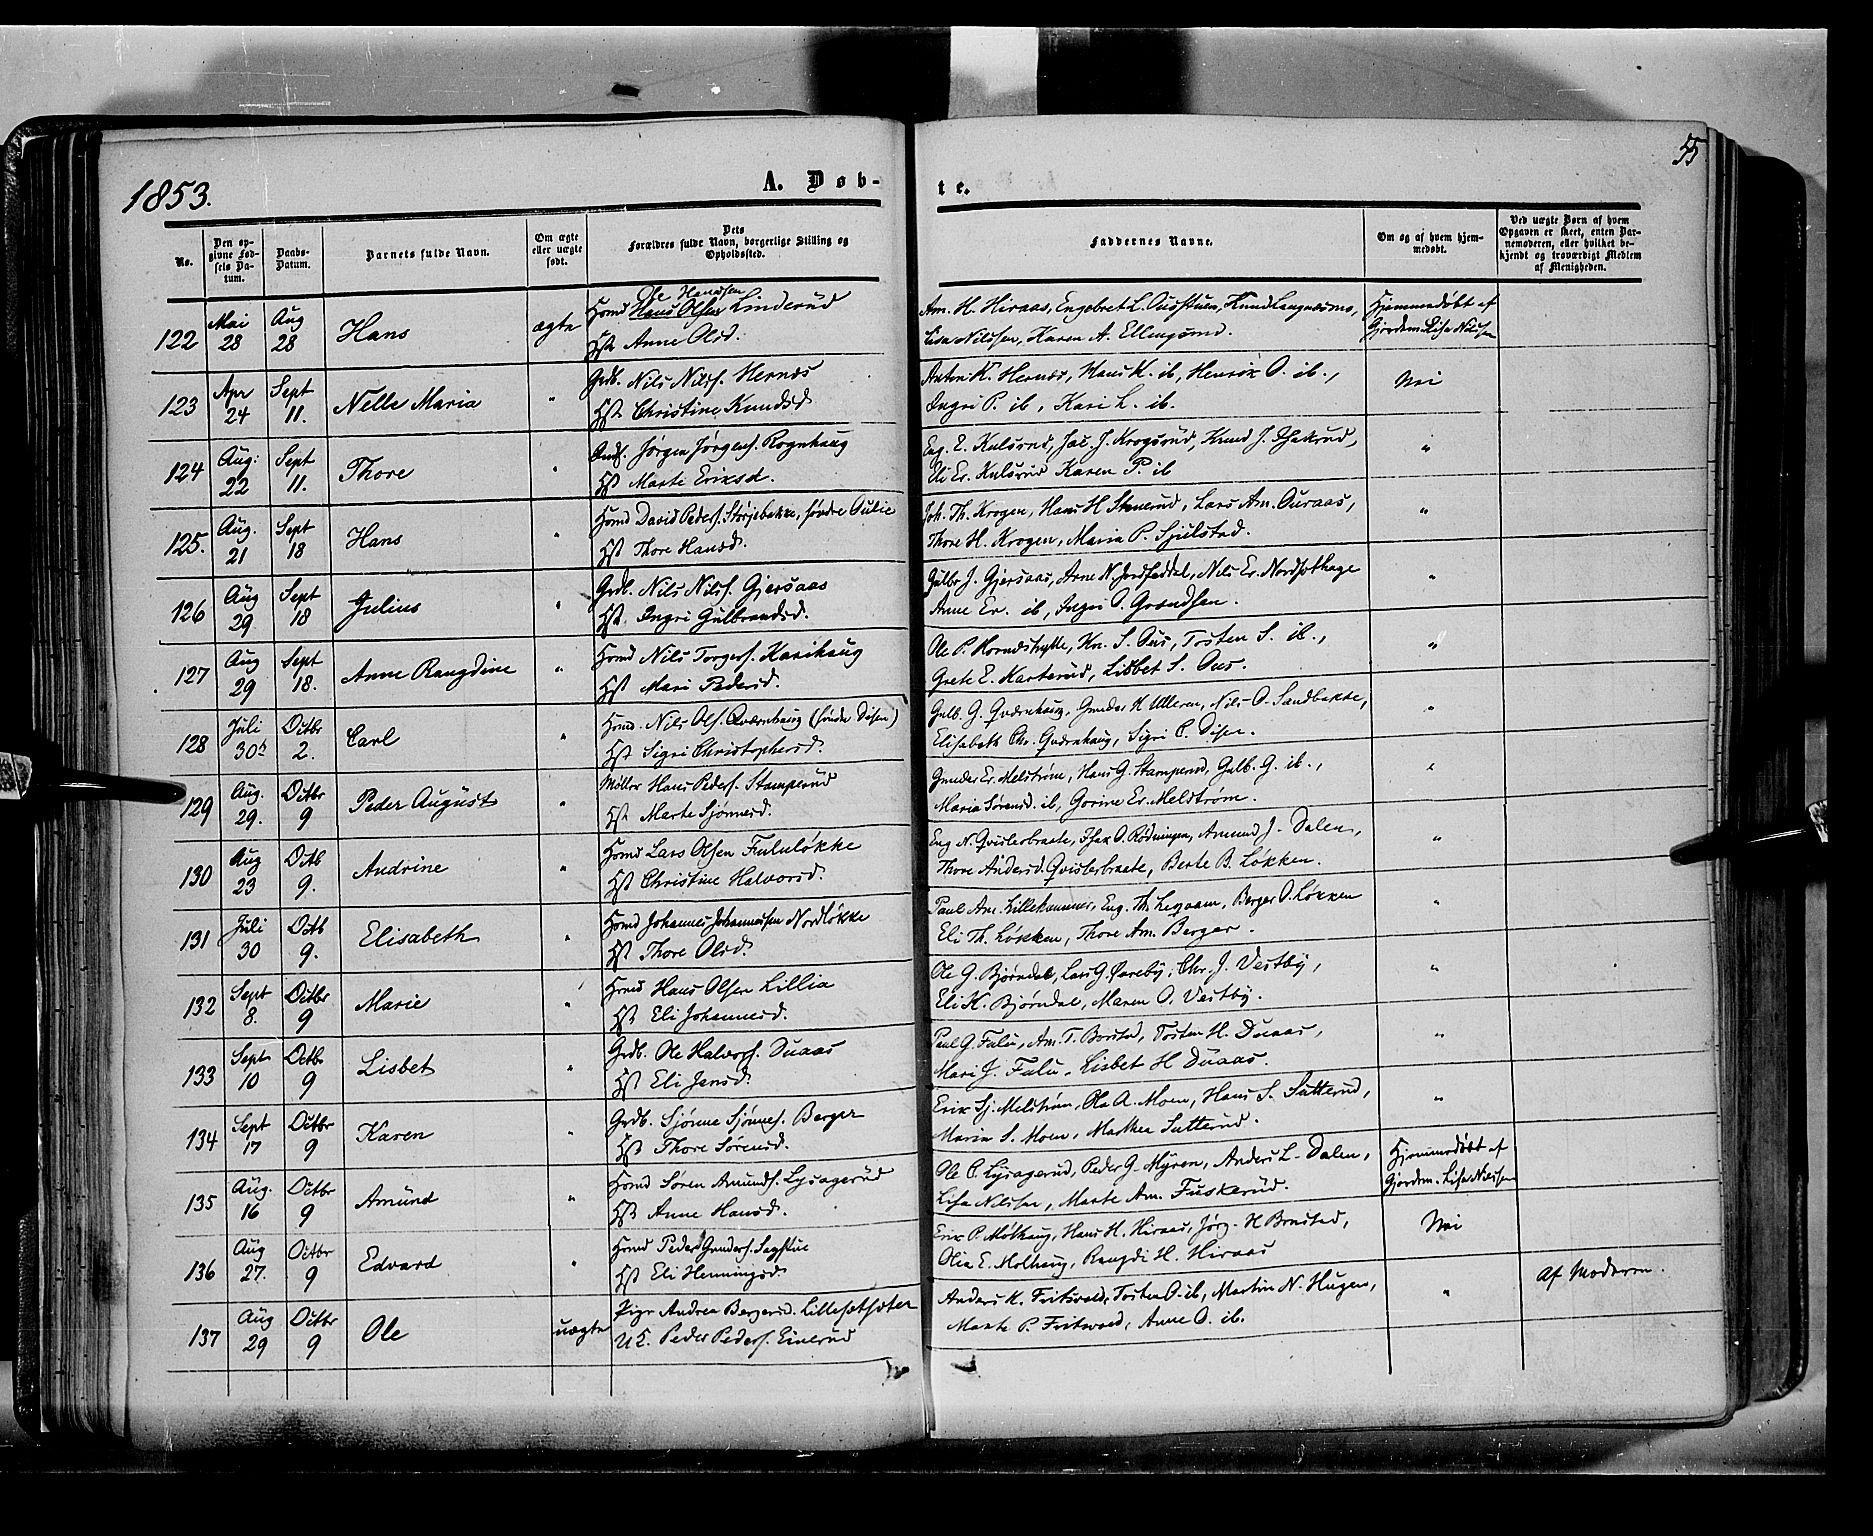 55
1853.
A. Døb-
te.
No.
Den opgivne Fødsels Datum.
Daabs-Datum.
Barnets fulde Navn.
Om ægte eller uægte født.
Dets Forældres fulde Navn, borgerlige Stilling og Opholdssted.
Faddernes Navne.
Om og af hvem hjemmedøbt.
Ved uægte Børn af hvem Opgaven er skeet, enten Barnemoderen, eller hvilket bekjendt og troværdigt Medlem af Menigheden.
122 Mai 28 Aug 28 Hans ægte
Ole Hansen
Hmd Hans Olsen Linderud
Hst Anne Olsd.
Am. H. Hiraas, Engebret L.
Lisa Nilssen, Karen A.
Hjemmedøbt af
Gjordem. Lisa Nilssen
123 Apr 24 Sept 11. Nelle Maria "
Grdb. Nils Nilss. Hernæs
Hst Christine Knudsd
Anton K. Hernæs, Hans K. ib, Henrik O. ib.,
Ingri P. ib, Kari L. ib.
Nei
124 Aug: 22 Sept 11. Thore "
Jørgen Jørgens. Rognhaug
Hst Marte Eriksd.
Eng. E. Kulsrud, Jac. J. Krogsrud, Knud J.
Eli Er. Kulsrud Karen P. ib
"
125. Aug. 21 Sept 18 Hans "
Hmd David Peders. Storjebakke, søndre Aulie
Hst Thore Hansd.
Joh. Th. Krogen, Hans H. Lars Am. Auraas,
Thore H. Krogen, Maria P. Sjulstad.
"
126 Aug 29 Sept 18 Julius "
Grdb. Nils Nilss. Gjersaas
Hst. Ingri Gulbrandsd.
Gulbr J. Gjersaas, Arne N. Nils Er.
Anne Er. ib, Ingri O.
"
127 Aug 29 Sept 18. Anne Rangdine "
Hmd Nils Torgers. Karihaug
Hst Mari Pedersd.
Ole P. Kn. S. Aus, Tosten S. ib.,
Grete E. Karterud, Lisbet S. Aus.
"
128 Juli 30d Octbr 2. Carl "
Hmd. Nils Ols. Qværnhaug (søndre Disen)
Hst Sigri Christophersd.
Gulb. G. Qværnhaug, Gunder K Ulleren, Nils O. Sandbakke,
Elisabeth Chr. Qværnhaug, Sigri C. Disen.
"
129 Aug. 29. Octbr 9 Peder August "
Møller Hans Peders. Stamperud
Hst Marte Sjønnesd.
Gunder Er. Melstrøm, Hans G. Stamperud, Gulb. G. ib.,
Maria Sørensd. ib, Gorine Er. Melstrøm.
"
130 Aug 23 Octb 9. Andrine "
Hmd Lars Olsen Fululøkke
Hst Christine Halvorsd.
Eng N. Qvisterbraate, Isak O. Rødningen, Amund J. Dalen,
Thore Andersd. Qvisterbraate, Berte B. Løkken.
"
131 Juli 30 Octb 9. Elisabeth "
Hmd Johannes Johannessen Nordløkke
Hst Thore Olsd.
Paul Am. Lillekammer, Eng. Th. Berger O. Løkken
Eli Th. Løkken, Thore Am. Berger.
"
132 Sept 8. Octbr 9 Marie "
Hmd Hans Olsen Lillia
Hst Eli Johannesd.
Ole G. Bjørndal, Lars G. Chr. J. Vestby,
Eli K. Bjørndal, Maren O. Vestby.
"
133 Sept 10 Octbr 9 Lisbet "
Grdb. Ole Halvors. Duaas
Hst Eli Jensd.
Paul G. Fulu, Am. T. Tosten H. Duaas,
Mari J. Fulu, Lisbet H Duaas.
"
134 Sept 17 Octbr 9 Karen "
Grdb. Sjønne Sjønnes. Berger
Hst Thore Sørensd.
Erik Sj. Melstrøm, Ole A. Moen, Hans S. Sætterud,
Maria S. Moen, Marthea Sætterud.
"
135 Aug. 16 Octbr 9 Amund "
Hmd Søren Amunds. Lysagerud
Hst Anne Hansd.
Ole C. Lysagerud, Peder G. Myren, Anders L. Dalen,
Lisa Nilssen, Marte Am. Fuskerud.
Hjemmedøbt af
Gjordem. Lisa Nilssen
136 Aug 27. Octbr 9 Edvard "
Hmd Peder Gunders. Sagstue
Hst Eli Henningsd.
Erik P. Molhaug, Hans H. Hiraas, Jørg. H
Olia E. Molhaug, Rangdi H. Hiraas
Nei
137 Aug 29 Octbr 9 Ole uægte
Pige Andrea Bergersd. Lillesætsæter
U.C. Peder Peders. Einerud
Anders K. Fritsvold, Tosten O. ib, Martin N. Hugen,
Marte P. Fritsvold, Anne O. ib.
"
Af Moderen.